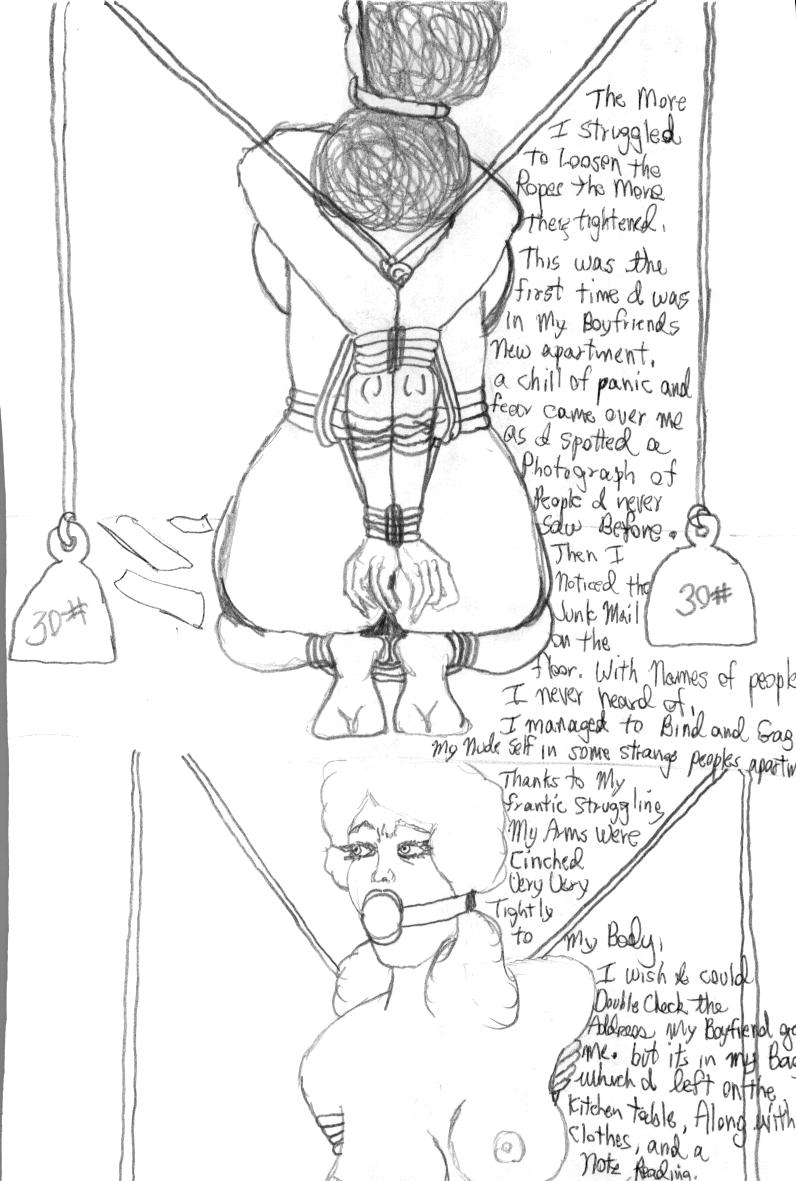 The More
I struggled
to Loosen the
Ropes the More
They tightened.
This was the
first time I was
in My Boyfriends
New apartment,
a chill of panic and
fear came over me
as I spotted a
Photograph of
People I never
Saw Before.
Then I
Noticed the
Junk Mail
on the
floor. With Names of people
I never heard of,
I managed to Bind and Gag
My Nude self in some strange peoples
30#
30#
Thanks to My
frantic Struggling
My Arms Were
Cinched
Very Very
Tightly
to My Body,
I wish I could
Double Check the
Address My Boyfriend
me. but its in my
which I left on the
Kitchen table, Along with
Clothes, and a
Note Reading.